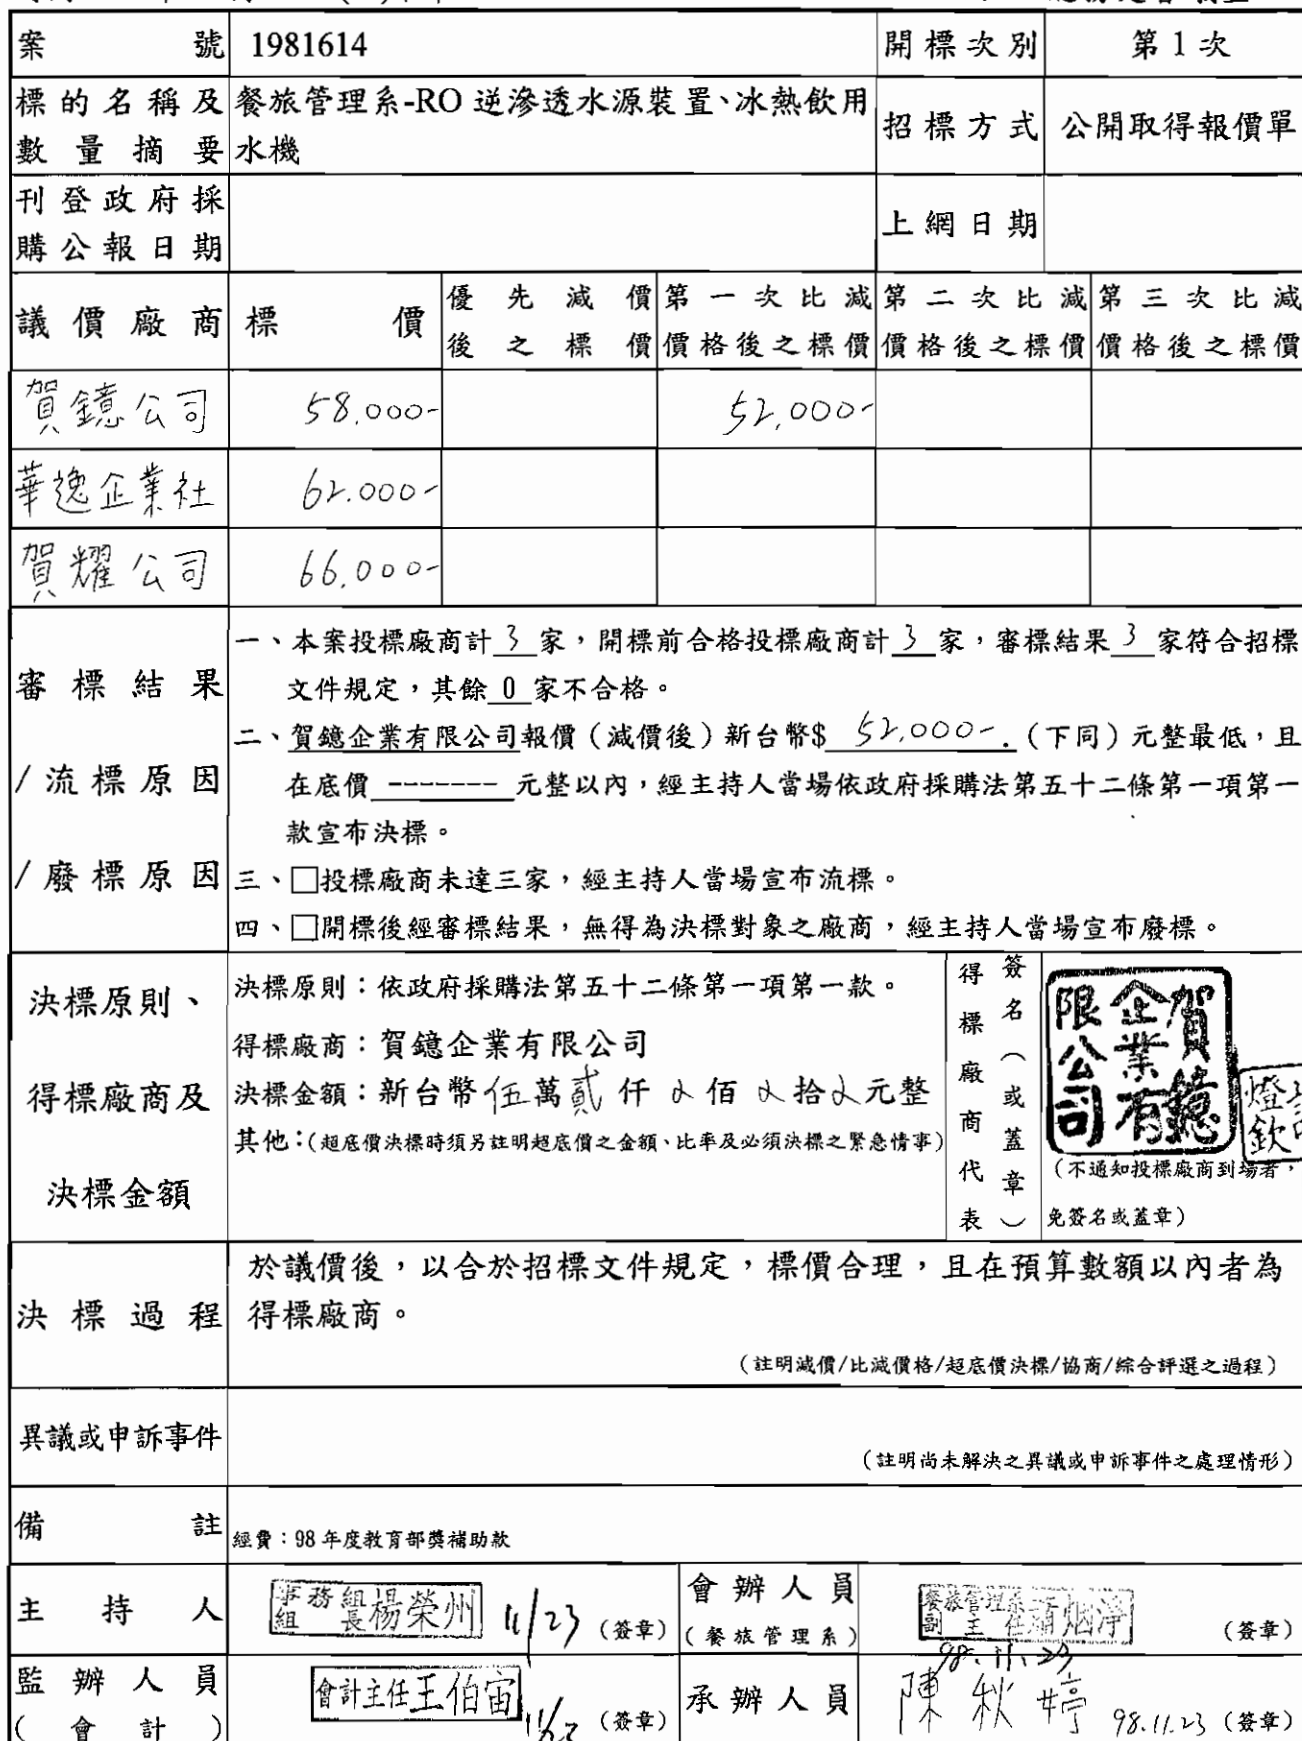 案號 1981614 開標次別 第1次
標的名稱及 餐旅管理系-RO 逆滲透水源裝置、冰熱飲用 招標方式 公開取得報價單
數量摘要 水機
刊登政府採 上網日期
購公報日期
議價廠商 標價 優先減價 第一次比減 第二次比減 第三次比減
後之標價 價格後之標價 價格後之標價 價格後之標價
賀鐿公司 58,000- 52,000-
華逸企業社 62,000-
賀耀公司 66,000-
審標結果
/流標原因
/廢標原因
一、本案投標廠商計 3 家,開標前合格投標廠商計 3 家,審標結果 3 家符合招標
文件規定,其餘 0 家不合格。
二、賀鐿企業有限公司報價(減價後)新台幣$ 52,000-.(下同)元整最低,且
在底價 ------- 元整以內,經主持人當場依政府採購法第五十二條第一項第一
款宣布決標。
三、□投標廠商未達三家,經主持人當場宣布流標。
四、□開標後經審標結果,無得為決標對象之廠商,經主持人當場宣布廢標。
決標原則、
得標廠商及
決標金額
決標原則:依政府採購法第五十二條第一項第一款。
得標廠商:賀鐿企業有限公司
決標金額:新台幣伍萬貳仟 佰 拾 元整
其他:(超底價決標時須另註明超底價之金額、比率及必須決標之緊急情事)
得標廠商代表
簽名(或蓋章)
賀鐿企業有限公司
燈欽
(不通知投標廠商到場者,
免簽名或蓋章)
決標過程 於議價後,以合於招標文件規定,標價合理,且在預算數額以內者為
得標廠商。
(註明減價/比減價格/超底價決標/協商/綜合評選之過程)
異議或申訴事件
(註明尚未解決之異議或申訴事件之處理情形)
備註 經費:98 年度教育部獎補助款
主持人 事務組組長楊榮州 11/23 (簽章) 會辦人員 (簽章)
(餐旅管理系) 餐旅管理系副主任 98.11.23
監辦人員 會計主任王伯宙 (簽章) 承辦人員 陳秋婷 98.11.23 (簽章)
(會計)